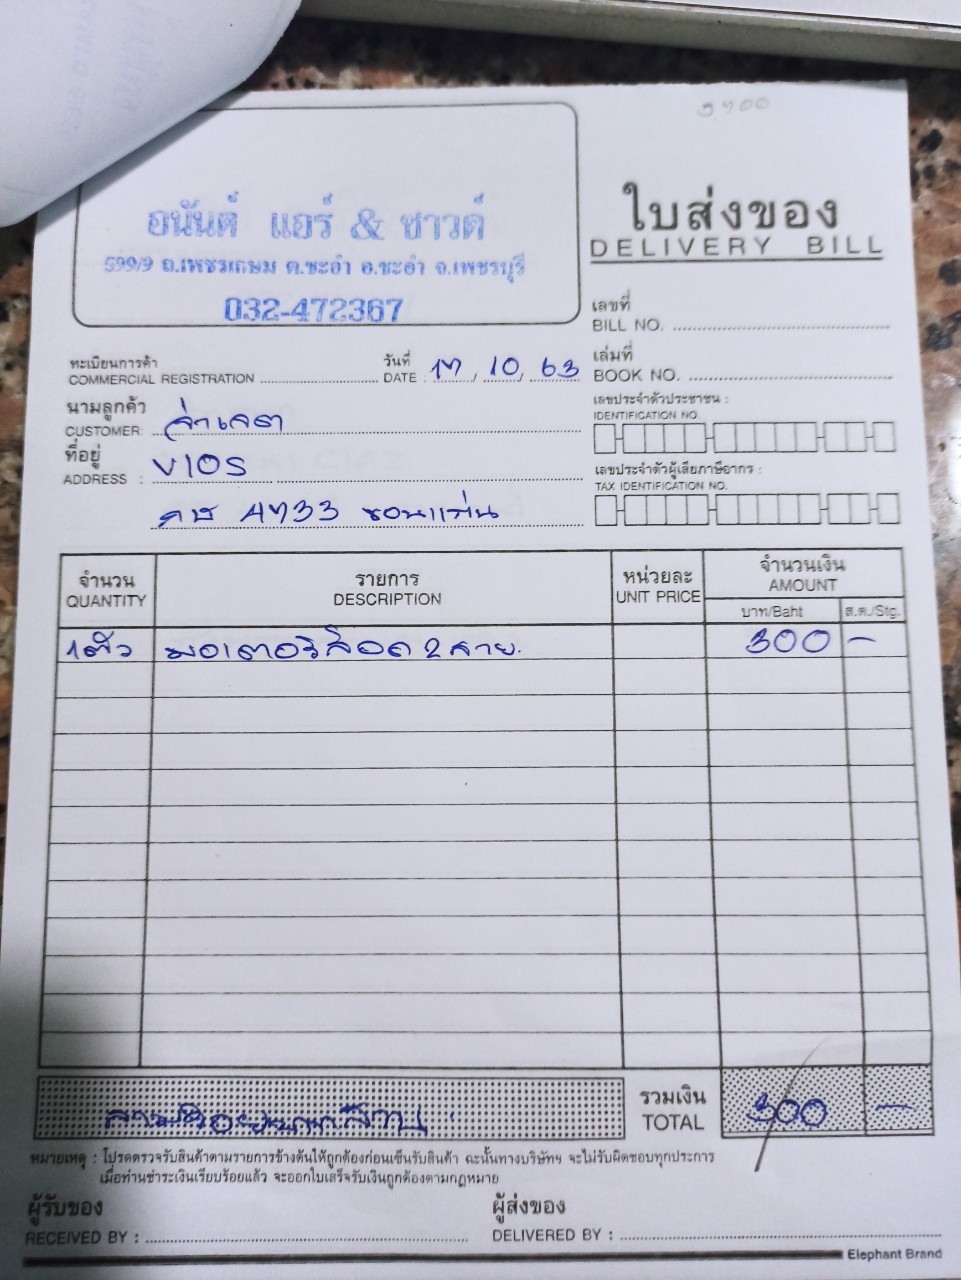 ใบส่งของ
DELIVERY BILL
อนันต์ แอร์ & ซาวด์
599/9 ถ.เพชรเกษม ต.ชะอำ อ.ชะอำ จ.เพชรบุรี
032-472367
เลขที่
BILL NO.
ทะเบียนการค้า
COMMERCIAL REGISTRATION
วันที่
DATE : 17, 10, 63
เล่มที่
BOOK NO.
นามลูกค้า
CUSTOMER:
เลขประจำตัวประชาชน :
IDENTIFICATION NO.
ที่อยู่
ADDRESS : VIOS
เลขประจำตัวผู้เสียภาษีอากร :
TAX IDENTIFICATION NO.
ขอนแก่น
จำนวน
QUANTITY
รายการ
DESCRIPTION
หน่วยละ
UNIT PRICE
จำนวนเงิน
AMOUNT
บาท/Baht ส.ต./Stg.
1 ตัว มอเตอร์ล็อค 2 สาย. 300 -
สามร้อยบาทถ้วน
รวมเงิน
TOTAL
300 -
หมายเหตุ : โปรดตรวจรับสินค้าตามรายการข้างต้นให้ถูกต้องก่อนเซ็นรับสินค้า ฉะนั้นทางบริษัทฯ จะไม่รับผิดชอบทุกประการ
เมื่อท่านชำระเงินเรียบร้อยแล้ว จะออกใบเสร็จรับเงินถูกต้องตามกฎหมาย
ผู้รับของ
RECEIVED BY :
ผู้ส่งของ
DELIVERED BY :
Elephant Brand